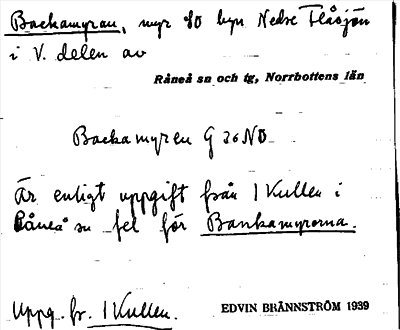 Backamyran, myr SO byn Nedre Flåsjön
i V. delen av
Råneå sn och tg, Norrbottens län
Backamyren G 26 NO
Är enligt uppgift från I Kullen i
Råneå sn fel för Bankamyrorna.
Uppg. fr. I Kullen.
EDVIN BRÄNNSTRÖM 1939